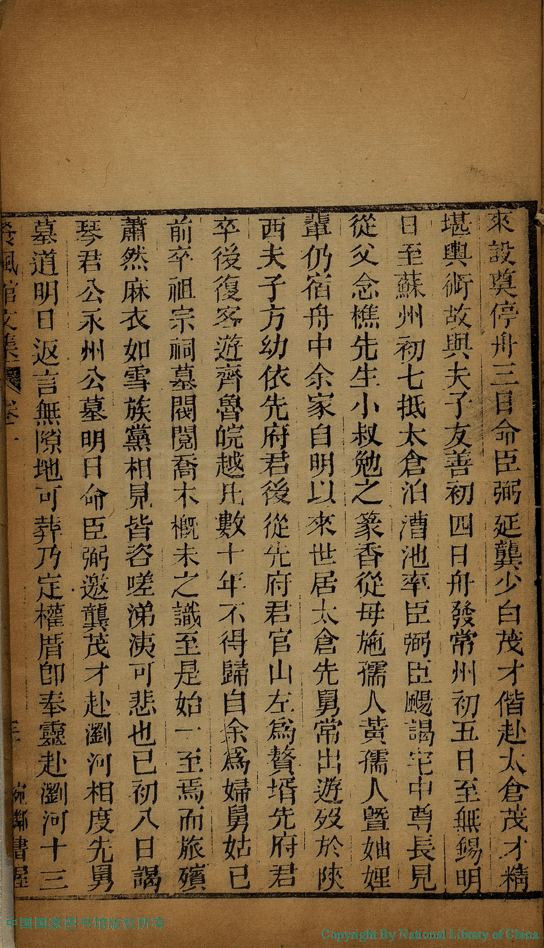 來設奠停舟三日命臣弼延龔少白茂才偕赴太倉茂才精
堪輿術故與夫子友善初四日舟發常州初五日至無錫明
日至蘇州初七抵太倉泊漕池率臣弼臣颺謁宅中尊長見
從父念樵先生小叔勉之篆香從母施孺人黃孺人暨妯娌
輩仍宿舟中余家自明以來世居太倉先舅常出遊歿於陝
西夫子方幼依先府君後從先府君官山左爲贅壻先府君
卒後復客遊齊魯皖越凡數十年不得歸自余爲婦舅姑已
前卒祖宗祠墓閥閱喬木概未之識至是始一至焉而旅殯
蕭然麻衣如雪族黨相見皆咨嗟涕洟可悲也已初八日謁
琴君公永州公墓明日命臣弼邀龔茂才赴瀏河相度先舅
墓道明日返言無隙地可葬乃定權厝卽奉靈赴瀏河十三
風館文集 卷一
宛鄰書屋
中国国家图书馆版权所有
Copyright By National Library of China